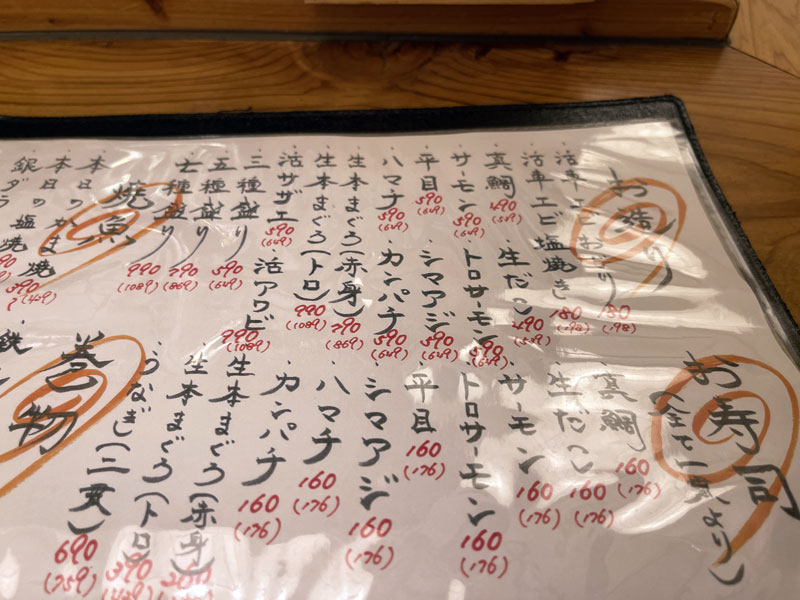 お造り
活車エビおどり 180 (198)
活車エビ塩焼き 180 (198)
真鯛 490 (539)
生だこ 490 (539)
サーモン 590 (649)
トロサーモン 590 (649)
平目 590 (649)
シマアジ 590 (649)
ハマチ 590 (649)
カンパチ 590 (649)
生本まぐろ(赤身) 790 (869)
生本まぐろ(トロ) 990 (1089)
活サザエ 590 (649)
活アワビ 990 (1089)
三種盛り 590 (649)
五種盛り 790 (869)
七種盛り 990 (1089)
焼魚
本日の
本日のかま
銀ダラ塩焼
お寿司
(全て一貫より)
真鯛 160 (176)
生だこ 160 (176)
サーモン 160 (176)
トロサーモン 160 (176)
平目 160 (176)
シマアジ 160 (176)
ハマチ 160 (176)
カンパチ 160 (176)
生本まぐろ(赤身)
生本まぐろ(トロ) 390
うなぎ(二貫) 690 (759)
巻物
鉄